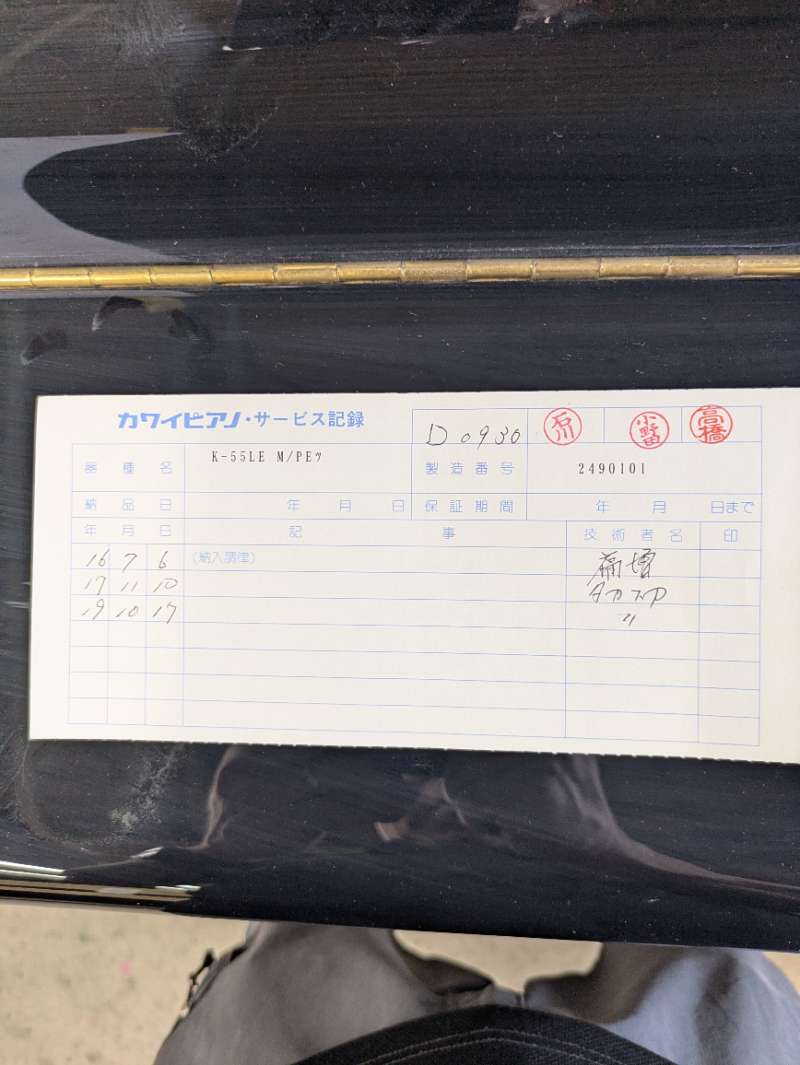 カワイピアノ・サービス記録
D0930 石川 小野田 高橋
器種名 K-55LE M/PEツ 製造番号 2490101
納品日 年 月 日 保証期間 年 月 日まで
年 月 日 記事 技術者名 印
16 7 6 (納入調律)
17 11 10
19 10 17 〃